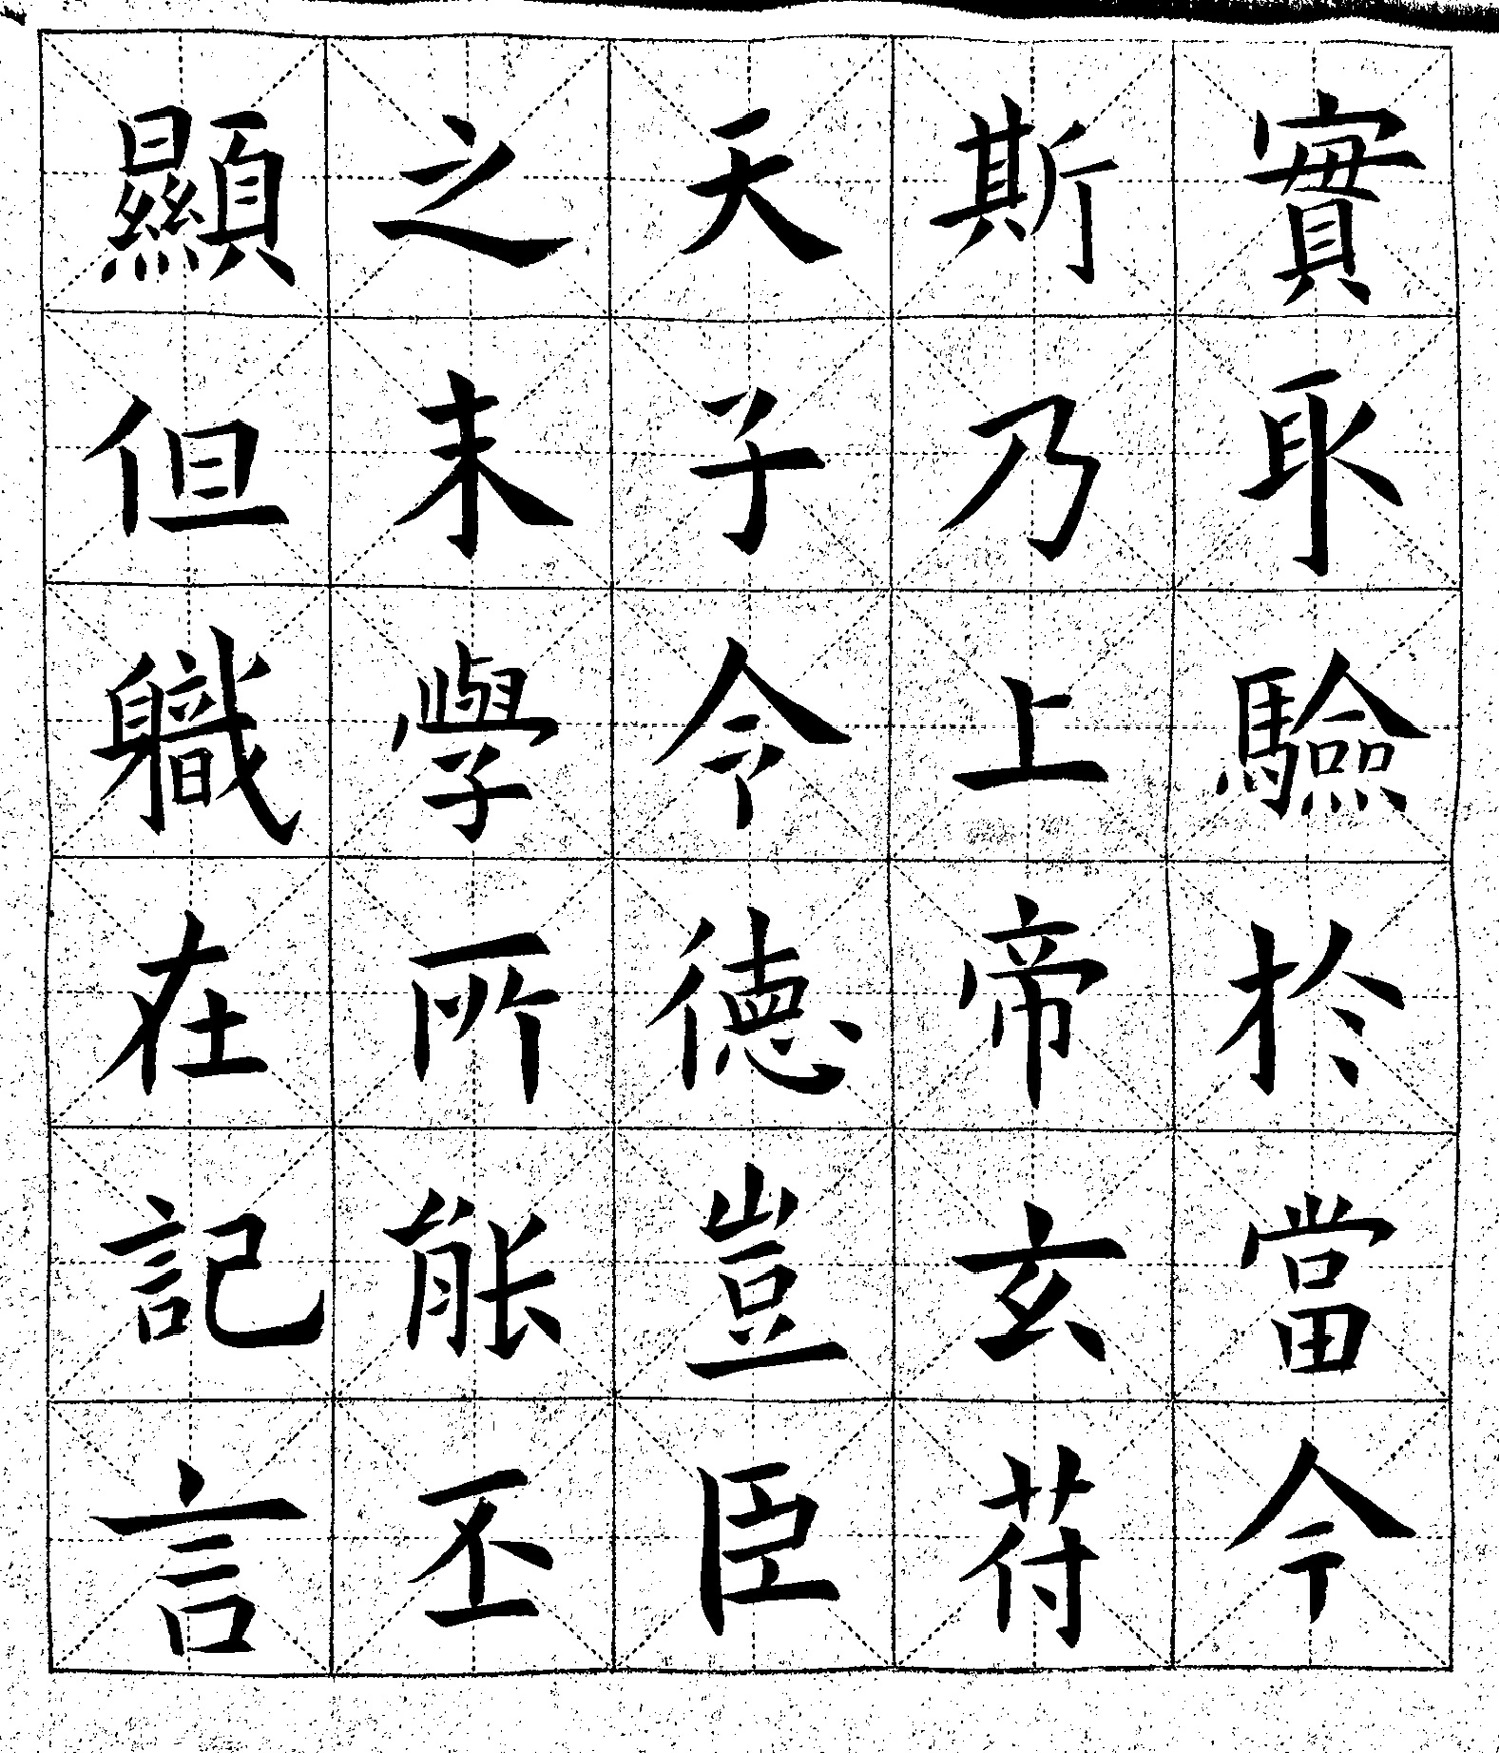 實取驗於當今
斯乃上帝玄符
天子令德豈臣
之末學所能丕
顯但職在記言